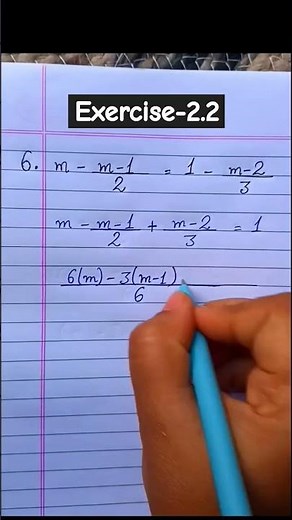 Exercise-2.2
6. m - \frac{m-1}{2} = 1 - \frac{m-2}{3}
m - \frac{m-1}{2} + \frac{m-2}{3} = 1
\frac{6(m) - 3(m-1)}{6}